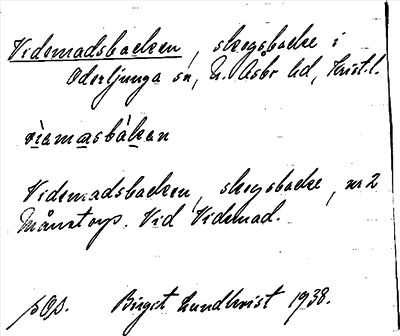 Videmadsbacken, skogsbacke i
Oderljunga sn, N. Åsbo hd, Krist. l.
viəmasbákən
Videmadsbacken, skogsbacke, nr 2
Månstorp. Vid Videmad.
pOp. Birgit Lundkvist 1938.